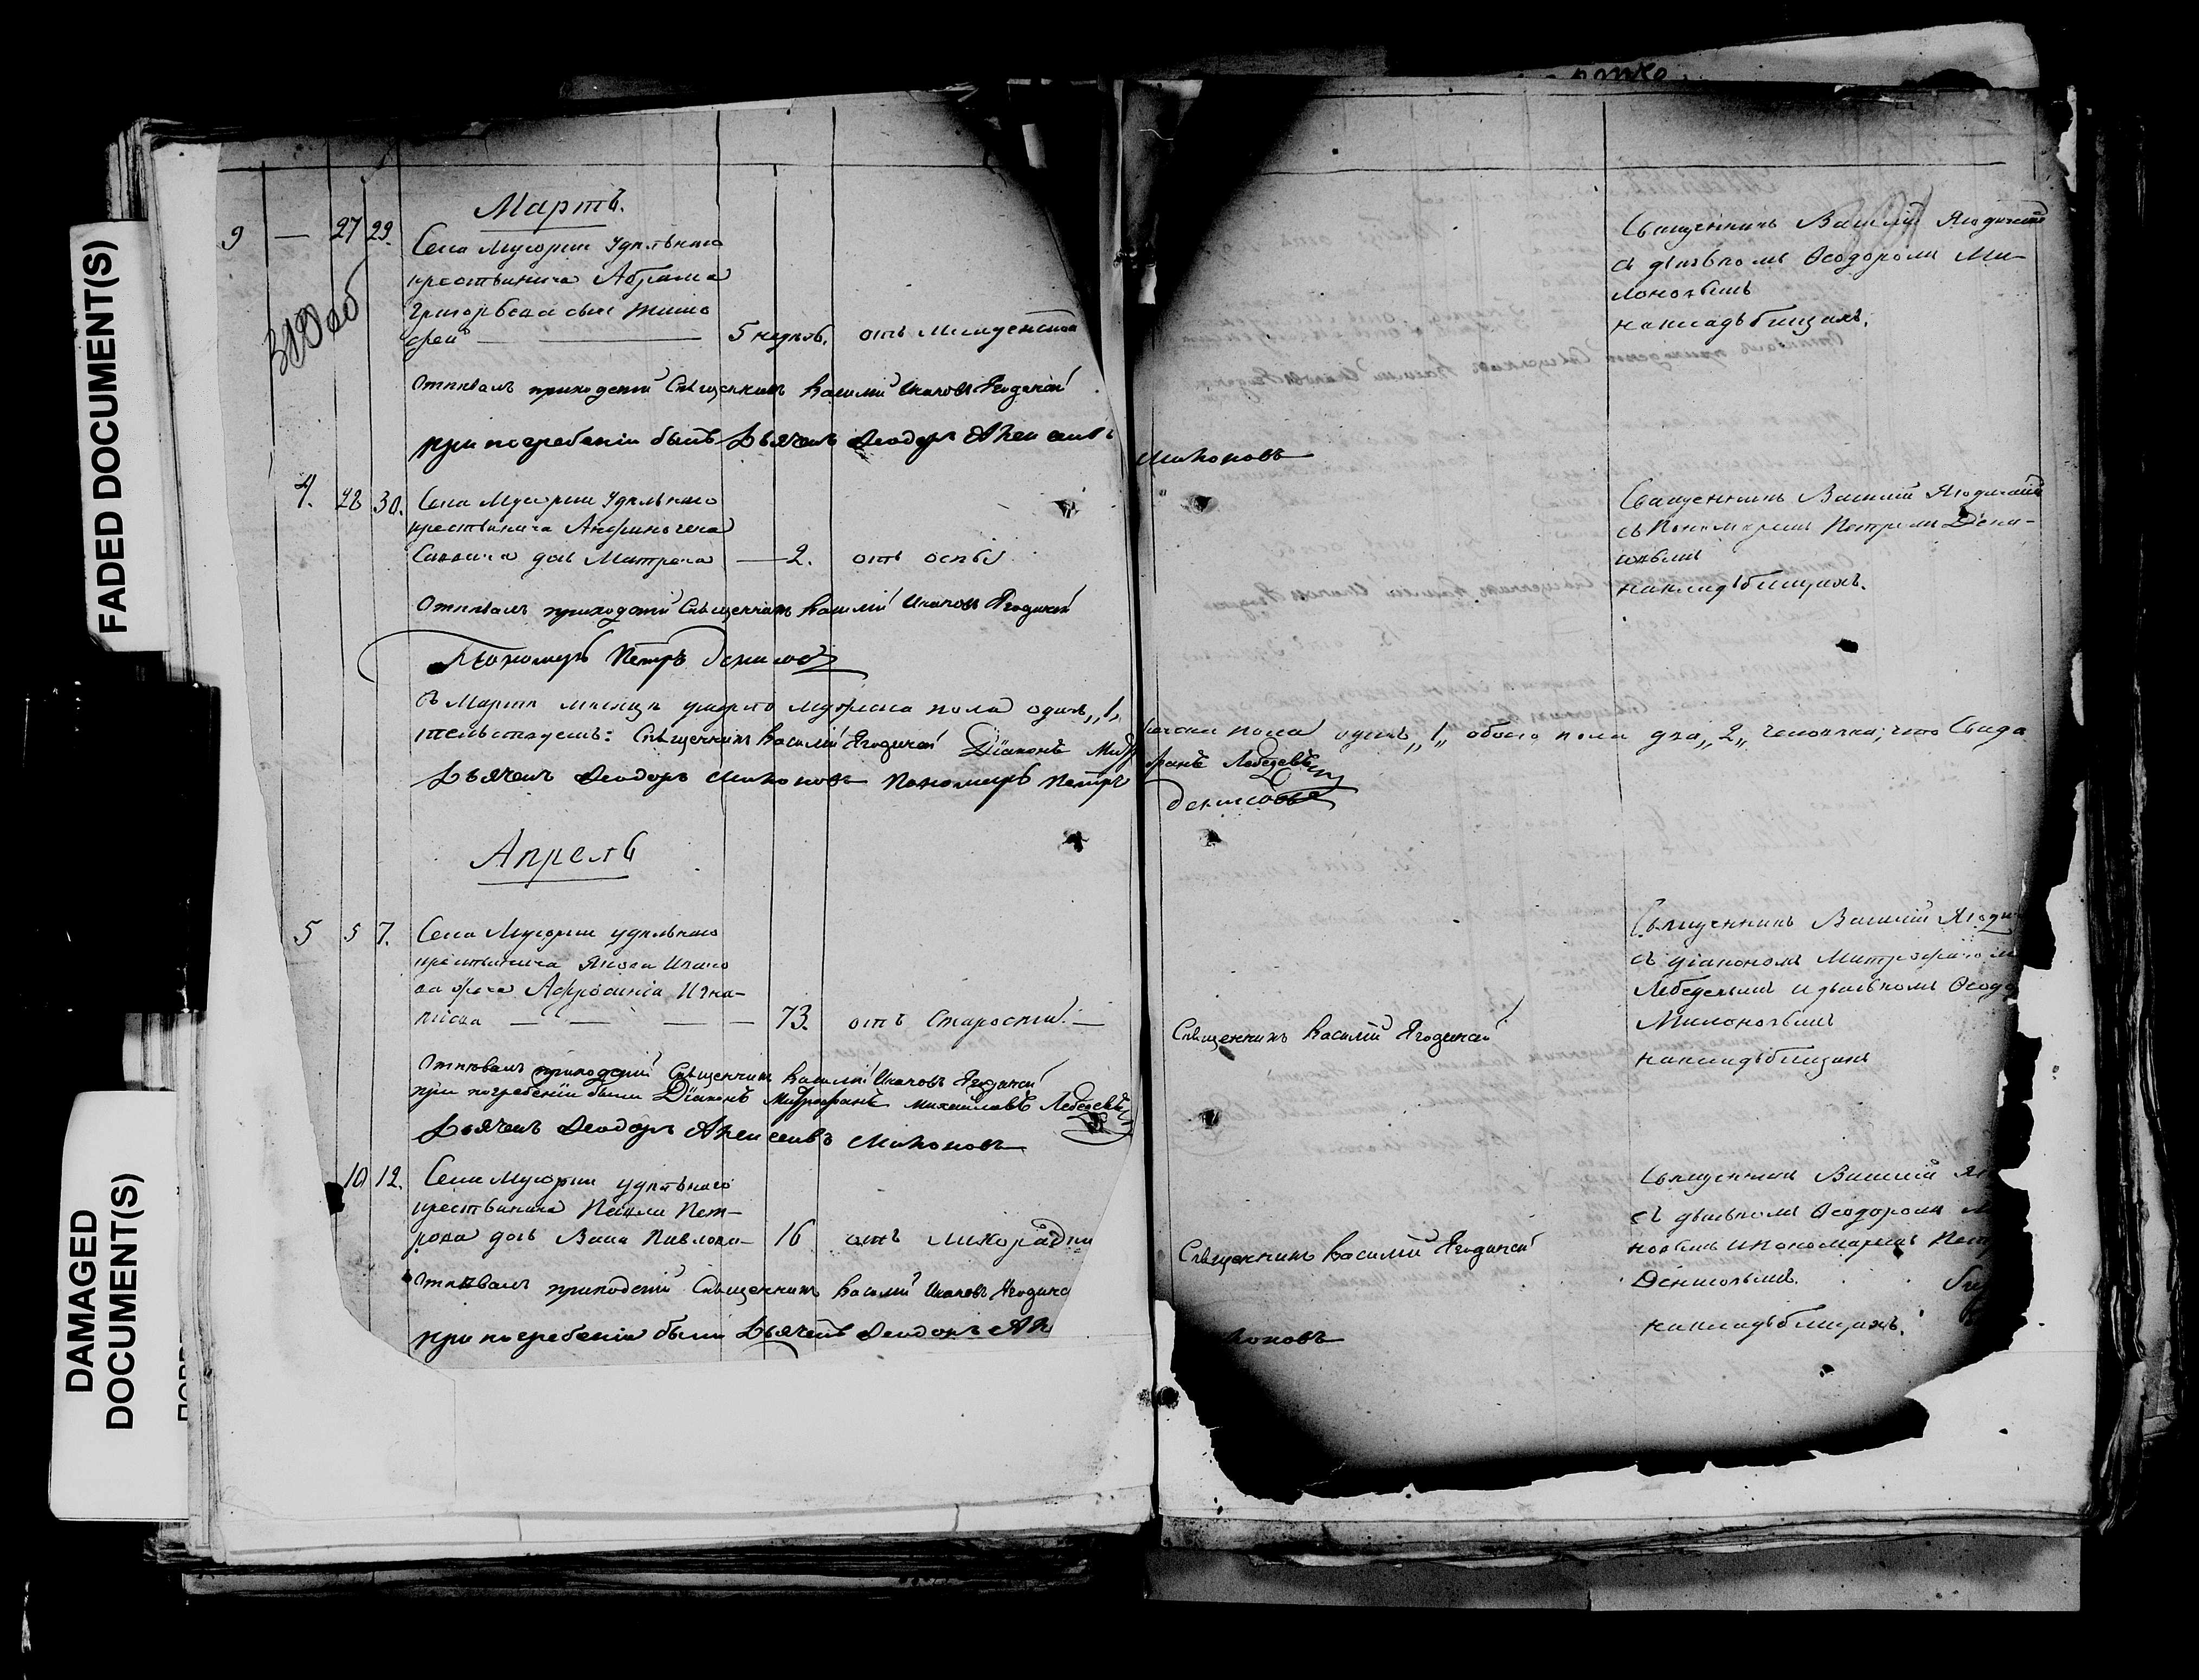 FADED DOCUMENT(S)
DAMAGED DOCUMENT(S)
Мартъ.
9 — 27 29.
Села Мусорки Удѣльнаго
крестьянина Абрама
Григорьева сынъ Тимо
фей — 5 недѣль. отъ Младенской
310 об
Отпѣвалъ приходскій Священникъ Василій Ивановъ Ягодинскій
при погребеніи былъ Дьячекъ Ѳеодоръ Алексѣевъ
Милоновъ
Священникъ Василій Ягодинскій
съ дьячкомъ Ѳеодоромъ Ми-
лоновымъ
на кладбищахъ.
4. 28 30. Села Мусорки Удѣльнаго
крестьянина
дочь Матрена — 2. отъ оспы
Отпѣвалъ приходскій Священникъ Василій Ивановъ Ягодинскій
Пономарь Петръ Денисовъ
Священникъ Василій Ягодинскій
съ Пономаремъ Петромъ Дени-
совымъ
на кладбищахъ.
Въ Мартѣ мѣсяцѣ умерло мужеска пола одинъ „1„ женска пола одинъ „1„ обоего пола два „2„ человѣка, что Свидѣ
тельствуемъ: Священникъ Василій Ягодинскій Діаконъ Митрофанъ Лебедевъ
Дьячекъ Ѳеодоръ Милоновъ Пономарь Петръ Денисовъ
Апрель
5 5 7. Села Мусорки удѣльнаго
крестьянина Якова Ивано
ва жена Афросинія Игна-
тьева — — — — 73. отъ Старости. —
Священникъ Василій Ягодинскій
Отпѣвалъ приходскій Священникъ Василій Ивановъ Ягодинскій
при погребеніи были Діаконъ Митрофанъ Михайловъ Лебедевъ
Дьячекъ Ѳеодоръ Алексѣевъ Милоновъ
Священникъ Василій Ягоди
съ діакономъ Митрофаном
Лебедевымъ и дьячкомъ Ѳеодо
Милоновымъ
на кладбищахъ
10 12. Села Мусорки удѣльнаго
крестьянина Павла Пет-
рова дочь Павлова — 16 отъ лихорадки
Священникъ Василій Ягодинскій
Отпѣвалъ приходскій Священникъ Василій Ивановъ Ягодинс
при погребеніи были Дьячекъ Ѳеодоръ Ал
лоновъ
Священникъ Василій Яг
съ дьячкомъ Ѳеодоромъ М
новымъ и пономаремъ Петр
Денисовымъ.
на кладбищахъ.